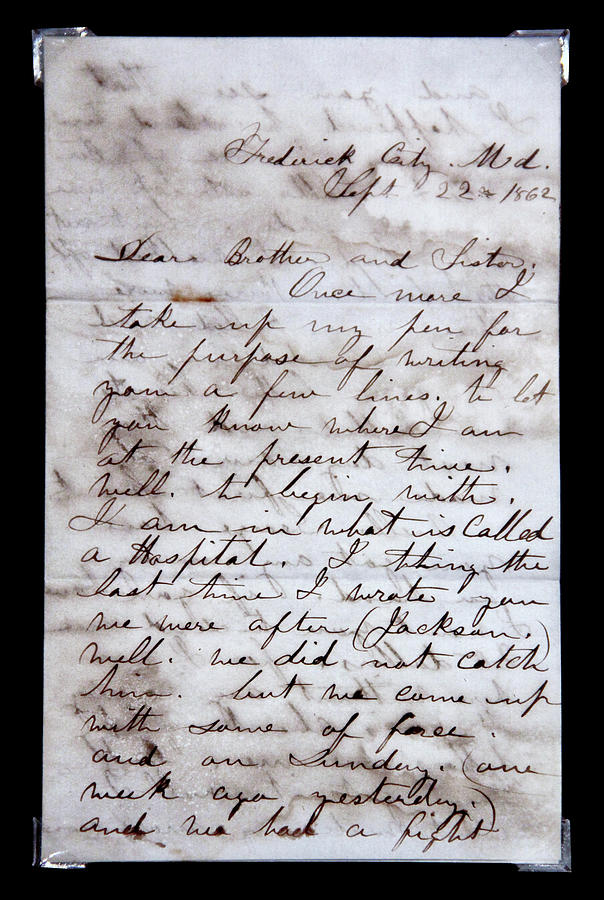 Frederick City. Md.
Sept 22nd 1862
Dear Brother and Sister.
Once more I
take up my pen for
the purpose of writing
you a few lines. to let
you know where I am
at the present time.
well. to begin with.
I am in what is called
a Hospital. I thing the
last time I wrote you
we were after (Jackson.)
well. we did not catch
him. but we come up
with some of force.
and on Sunday. (one
week ago yesterday.)
and we had a fight